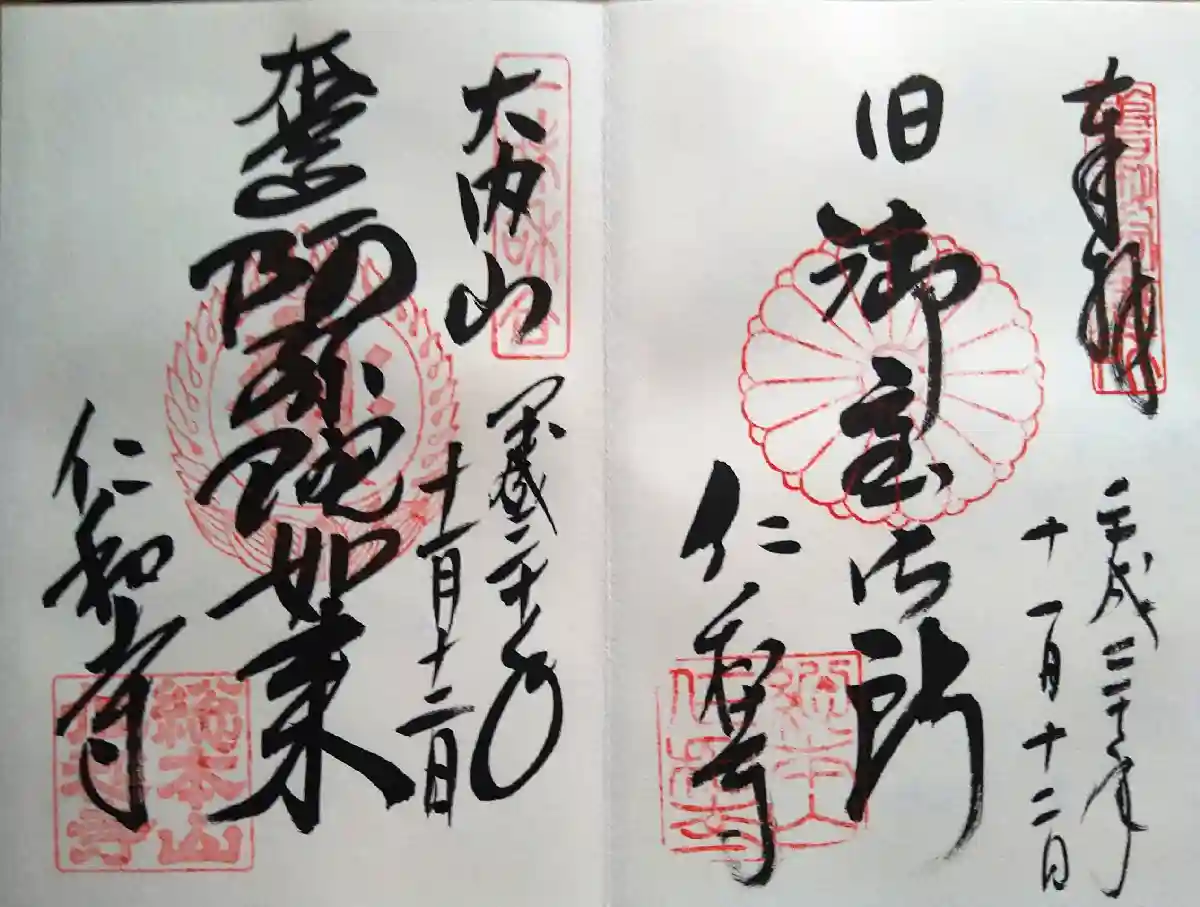 奉拝
平成三十年
十一月十二日
旧御室御所
仁和寺
總本山
仁和寺
大内山
平成三十年
十一月十二日
阿弥陀如来
仁和寺
総本山
仁和寺